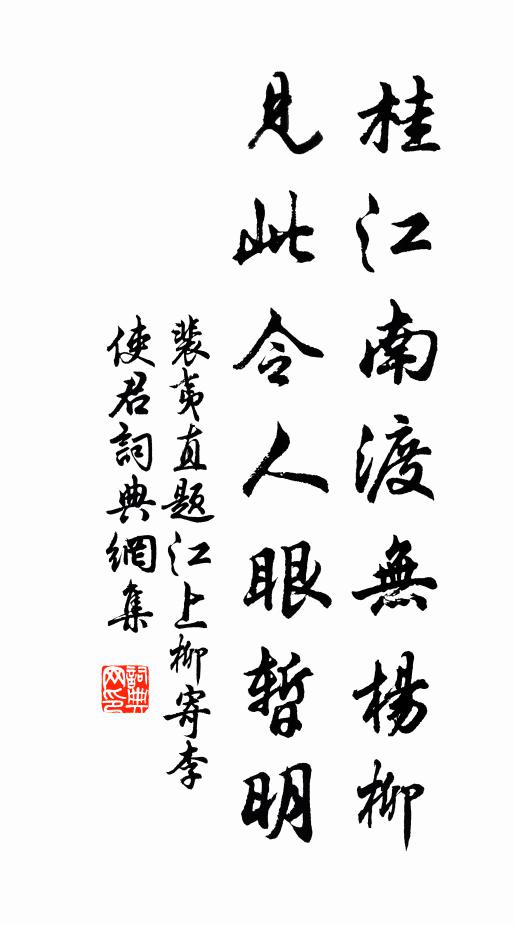 桂江南渡無楊柳
見此令人眼暫明
裴夷直題江上柳寄李
使君詞典網集
詞典
网印